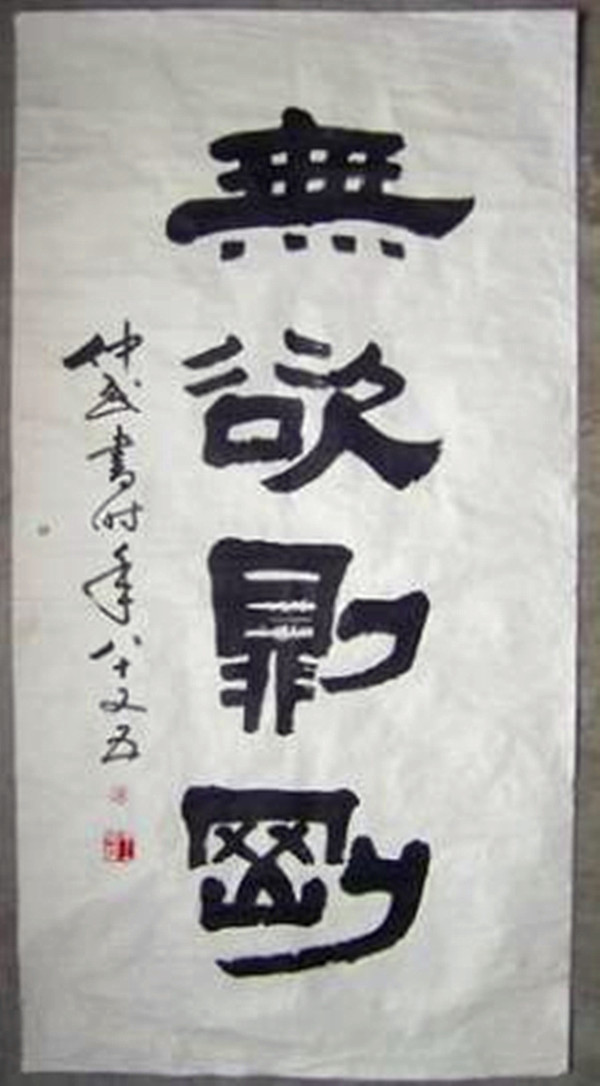 無欲則剛
仲武書时年八十又五